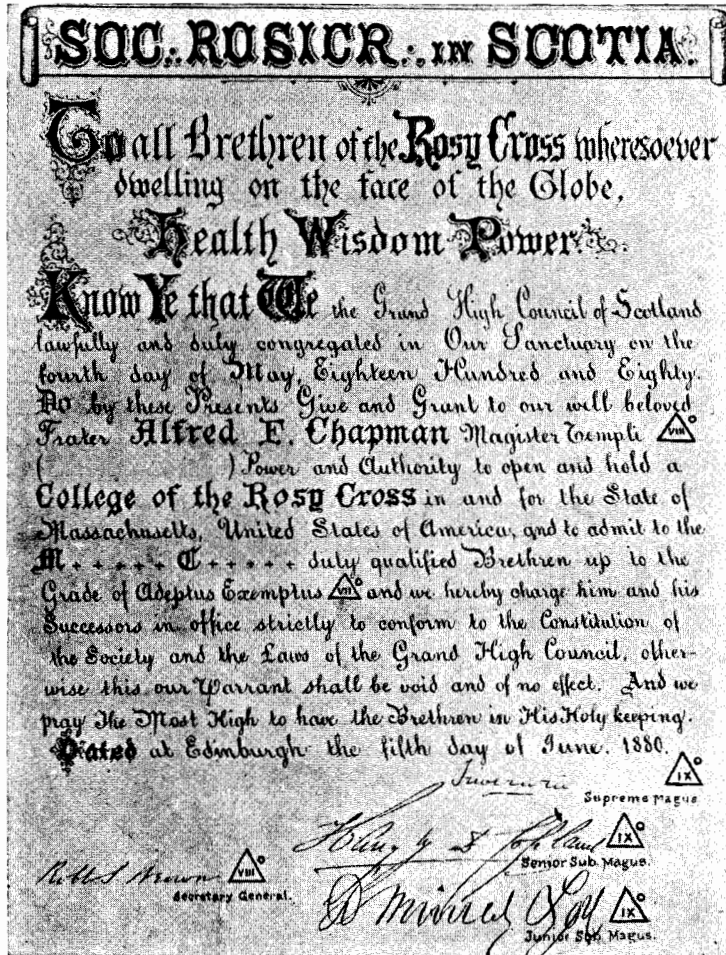 SOC∴ ROSICR∴ IN SCOTIA.
To all Brethren of the Rosy Cross wheresoever
dwelling on the face of the Globe,
Health Wisdom Power.
Know Ye that We the Grand High Council of Scotland
lawfully and duly congregated in Our Sanctuary on the
fourth day of May, Eighteen Hundred and Eighty.
Do by these Presents Give and Grant to our well beloved
Frater Alfred F. Chapman Magister Templi VIII°
( ) Power and Authority to open and hold a
College of the Rosy Cross in and for the State of
Massachusetts, United States of America, and to admit to the
M. + + + + + C + + + + + duly qualified Brethren up to the
Grade of Adeptus Exemptus VII° and we hereby charge him and his
Successors in office strictly to conform to the Constitution of
the Society and the Laws of the Grand High Council, other-
wise this our Warrant shall be void and of no effect. And we
pray The Most High to have the Brethren in His Holy keeping.
Dated at Edinburgh the fifth day of June. 1880.
IX°
Supreme Magus
IX°
Senior Sub. Magus.
Robt S Brown VIII°
Secretary General.
IX°
Junior Sub. Magus.